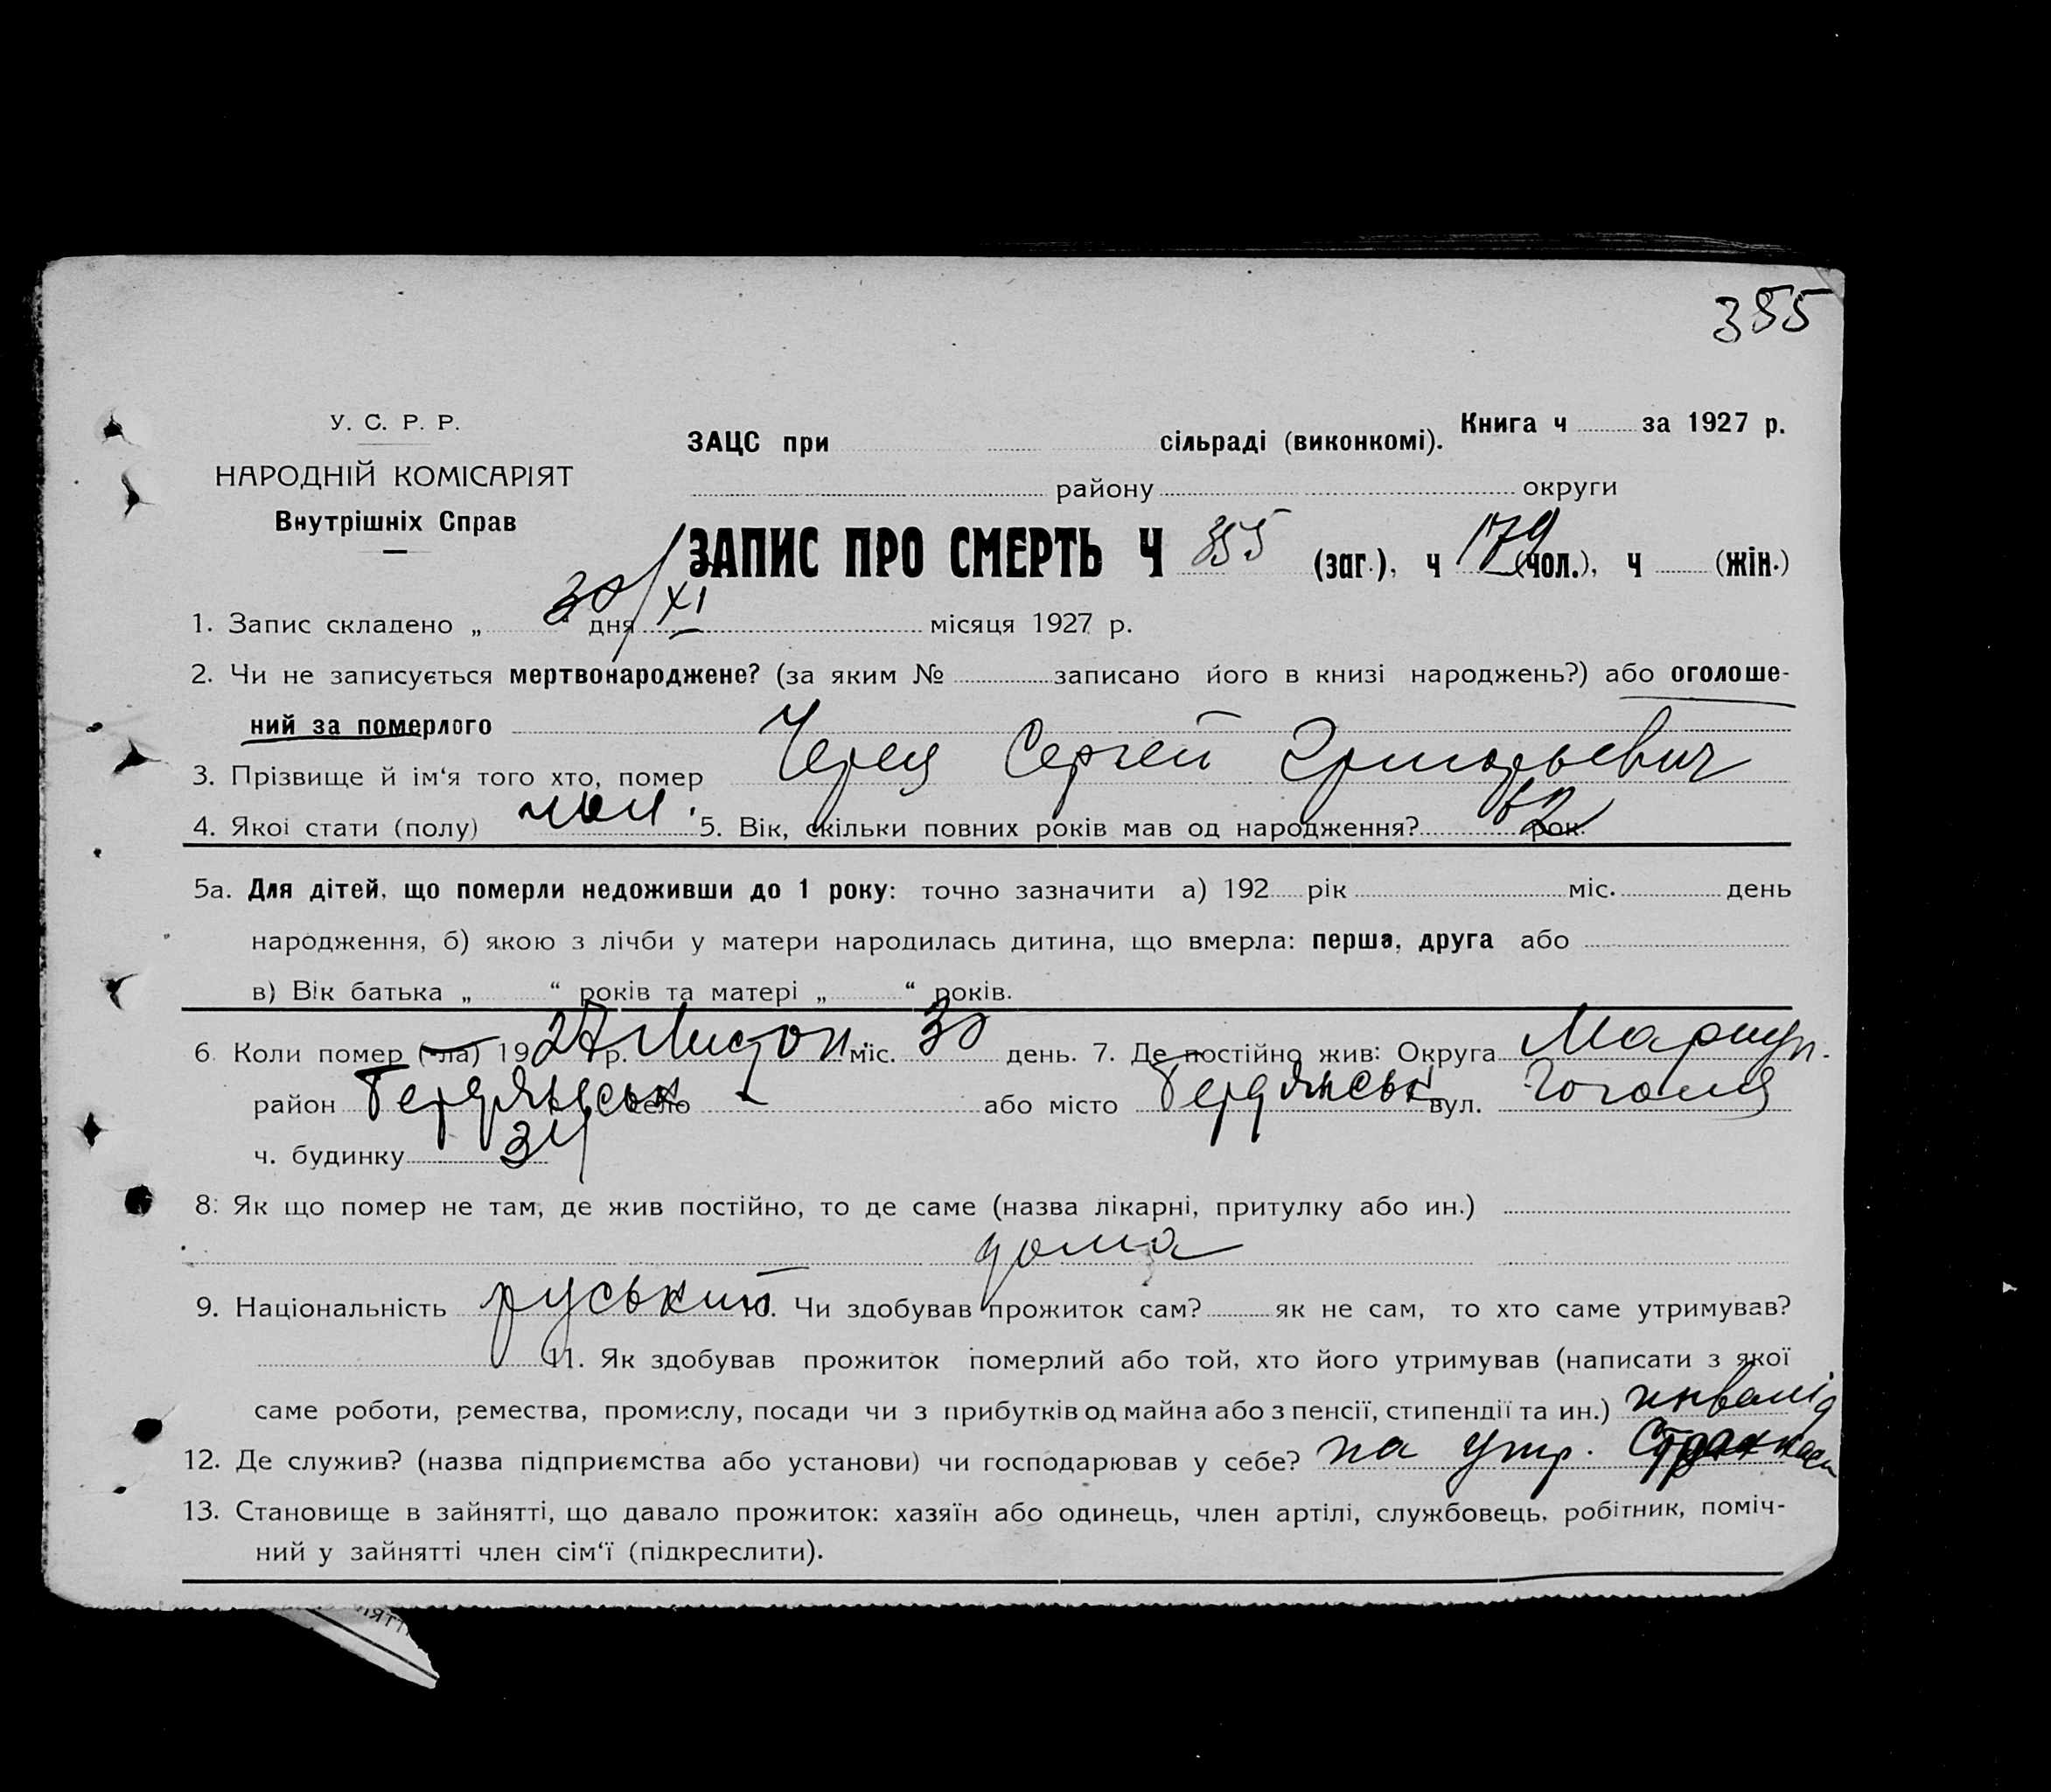 355
У. С. Р. Р.
НАРОДНІЙ КОМІСАРІЯТ
Внутрішніх Справ
ЗАЦС при сільраді (виконкомі). Книга ч за 1927 р.
району округи
ЗАПИС ПРО СМЕРТЬ Ч 355 (заг.), ч 179 (чол.), ч (жін.)
1. Запис складено „ 30 “ дня XI місяця 1927 р.
2. Чи не записується мертвонароджене? (за яким № записано його в книзі народжень?) або оголоше-
ний за померлого
3. Прізвище й ім‘я того хто, помер Сергей Григорьевич
4. Якої стати (полу) чол. 5. Вік, скільки повних років мав од народження? 62 рок.
5а. Для дітей, що померли недоживши до 1 року: точно зазначити а) 192 рік міс. день
народження, б) якою з лічби у матери народилась дитина, що вмерла: перша, друга або
в) Вік батька „ “ років та матері „ “ років.
6. Коли помер (-ла) 1927 р. Листоп. міс. 30 день. 7. Де постійно жив: Округа Мариуп.
район Бердянськ село або місто Бердянськ вул. Гоголя
ч. будинку 34
8: Як що помер не там, де жив постійно, то де саме (назва лікарні, притулку або ин.)
дома
9. Національність руський 10. Чи здобував прожиток сам? як не сам, то хто саме утримував?
11. Як здобував прожиток померлий або той, хто його утримував (написати з якої
саме роботи, ремества, промислу, посади чи з прибутків од майна або з пенсії, стипендії та ин.) инвалід
12. Де служив? (назва підприємства або установи) чи господарював у себе? на утр. Страхкаси
13. Становище в зайнятті, що давало прожиток: хазяїн або одинець, член артілі, службовець, робітник, поміч-
ний у зайнятті член сім‘ї (підкреслити).